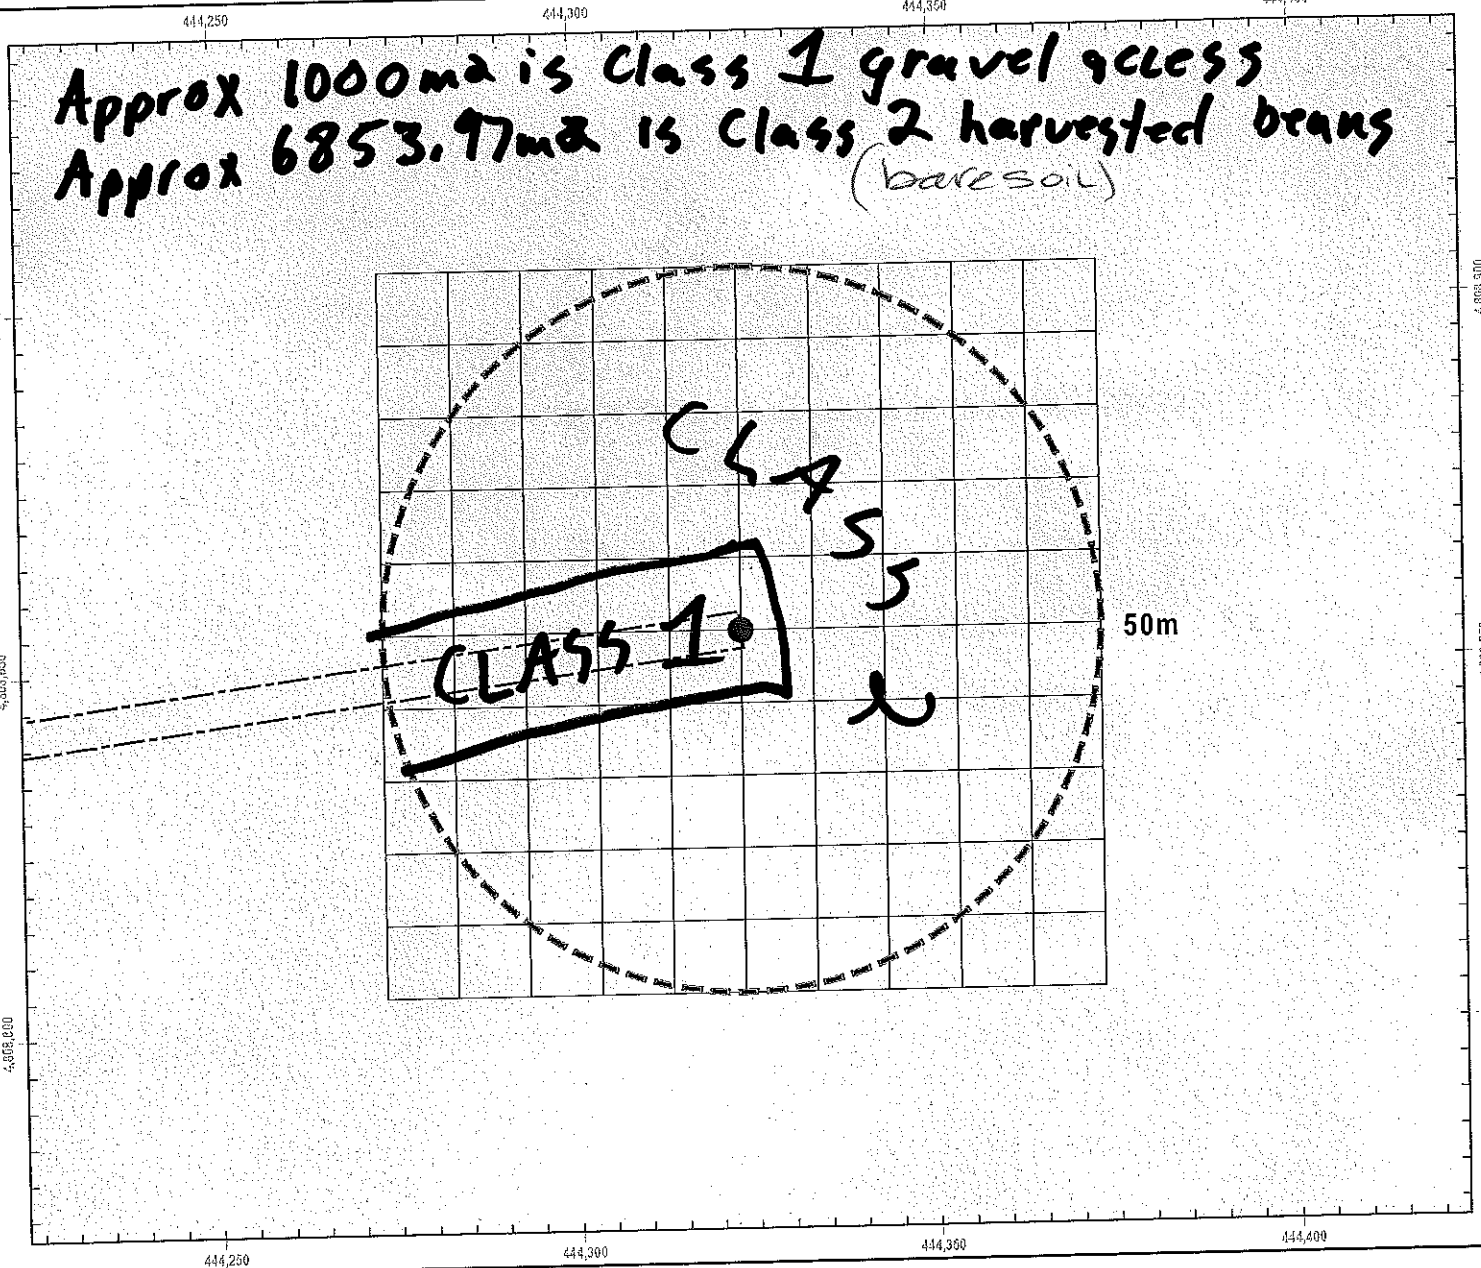 444,250 444,300 444,350
Approx 1000m2 is Class 1 gravel access
Approx 6853.97m2 is Class 2 harvested beans
(bare soil)
CLASS
CLASS 1
50m
2
4,808,800
444,250 444,300 444,350 444,400